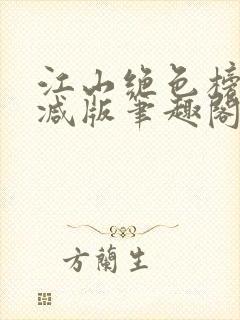 江山绝色榜
减版笔趣阁
方蘭生